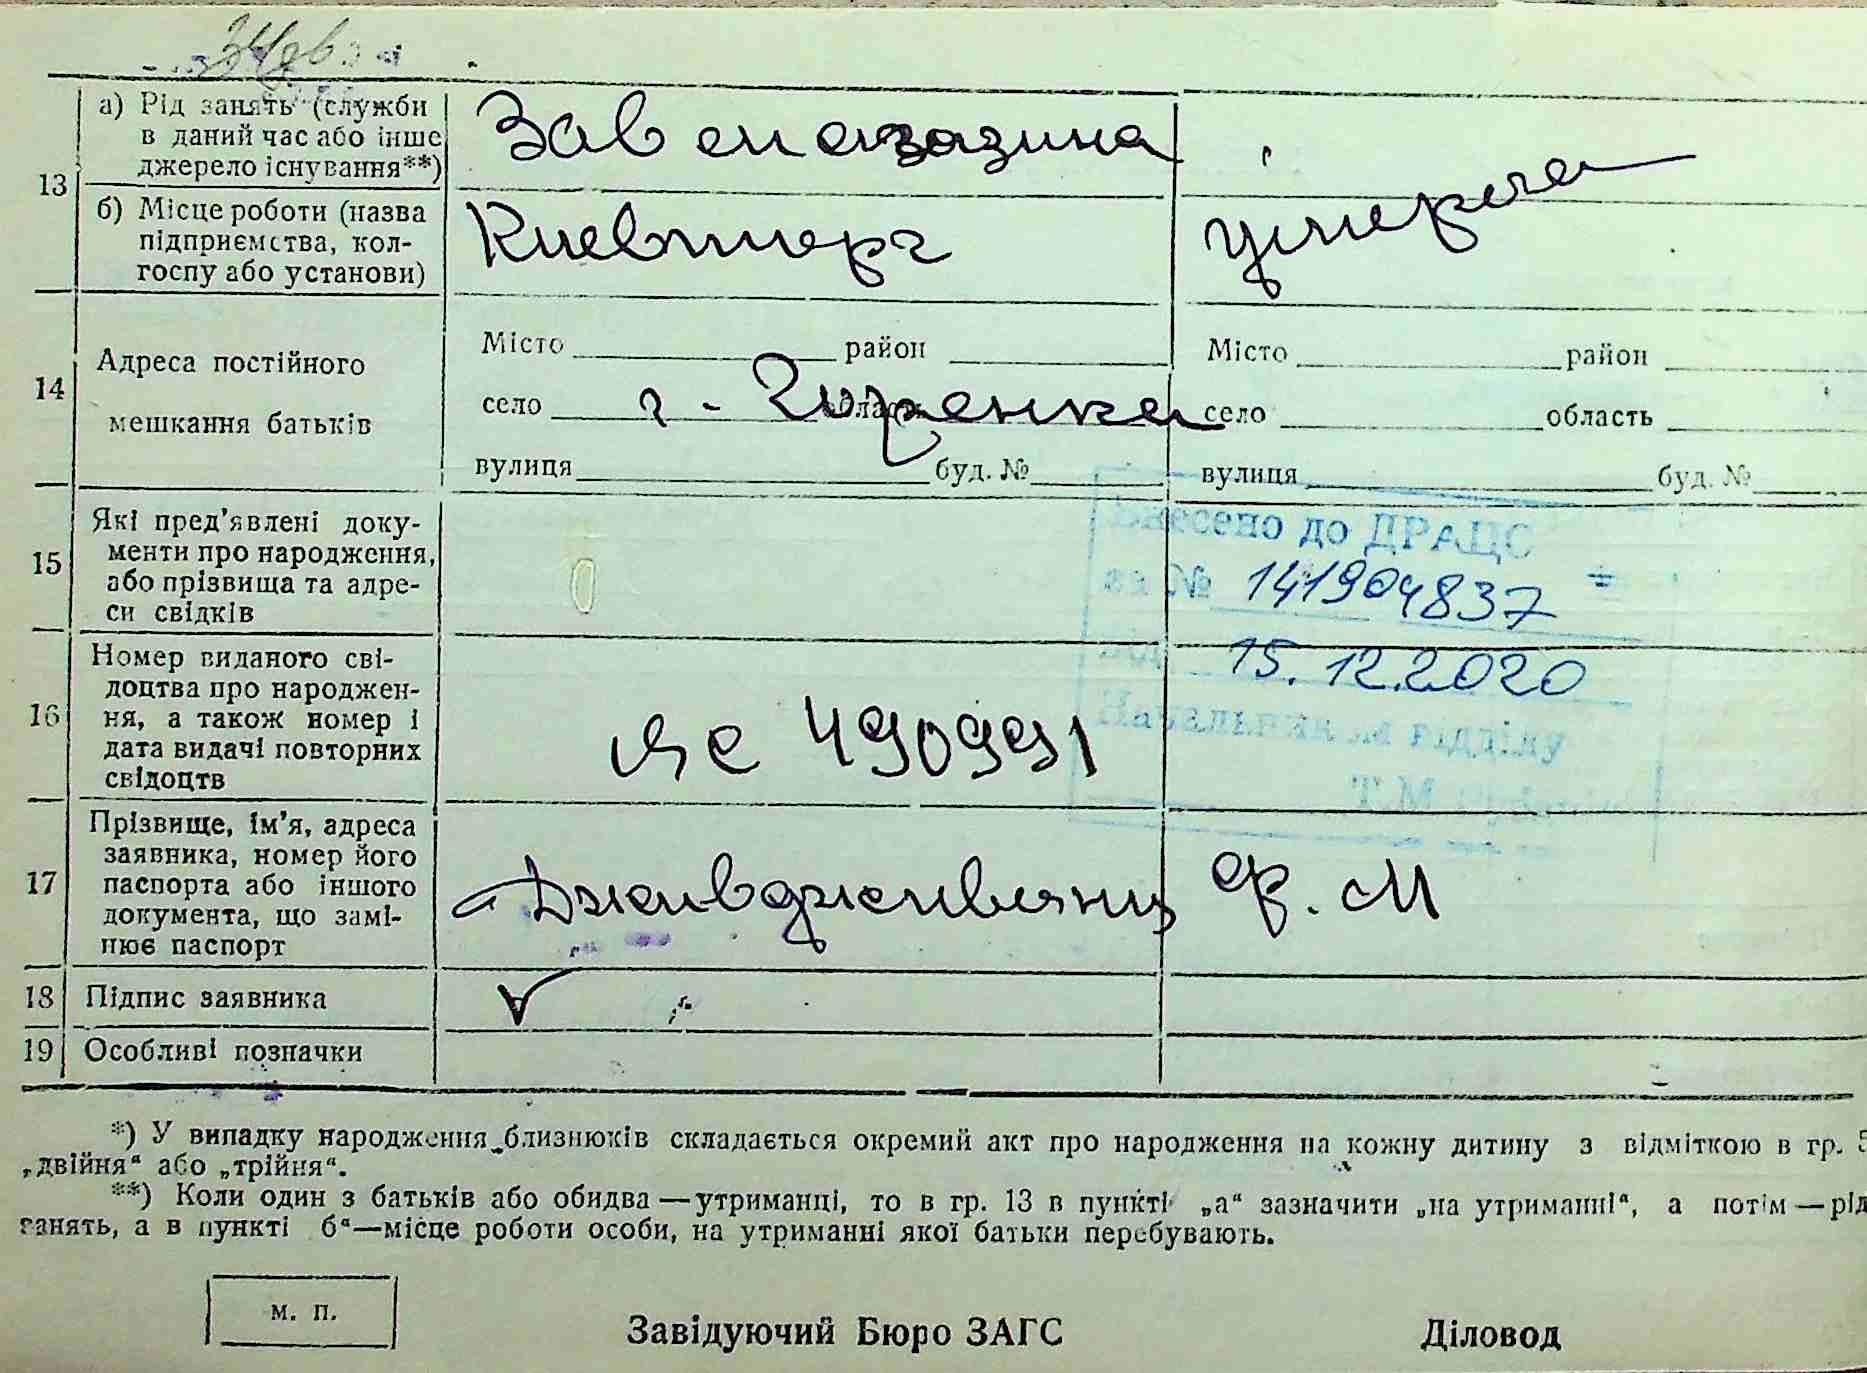 а) Рід занять (служби
в даний час або інше
джерело існування**)
Зав магазина
13
б) Місце роботи (назва
підприємства, кол-
госпу або установи)
Киевторг
умерла
14
Адреса постійного
мешкання батьків
Місто район
Місто район
село г. Горенка область
село область
вулиця буд. №
вулиця буд. №
15
Які пред'явлені доку-
менти про народження,
або прізвища та адре-
си свідків
Внесено до ДРАЦС
за № 141904837
від 15.12.2020
Начальник відділу
Т.М
16
Номер виданого сві-
доцтва про народжен-
ня, а також номер і
дата видачі повторних
свідоцтв
490991
17
Прізвище, ім'я, адреса
заявника, номер його
паспорта або іншого
документа, що замі-
нює паспорт
Дживджививянц Ф. М
18 Підпис заявника
19 Особливі позначки
*) У випадку народження близнюків складається окремий акт про народження на кожну дитину з відміткою в гр. 5
„двійня“ або „трійня“.
**) Коли один з батьків або обидва—утриманці, то в гр. 13 в пункті „а“ зазначити „на утриманні“, а потім—рід
занять, а в пункті б“—місце роботи особи, на утриманні якої батьки перебувають.
м. п.
Завідуючий Бюро ЗАГС
Діловод